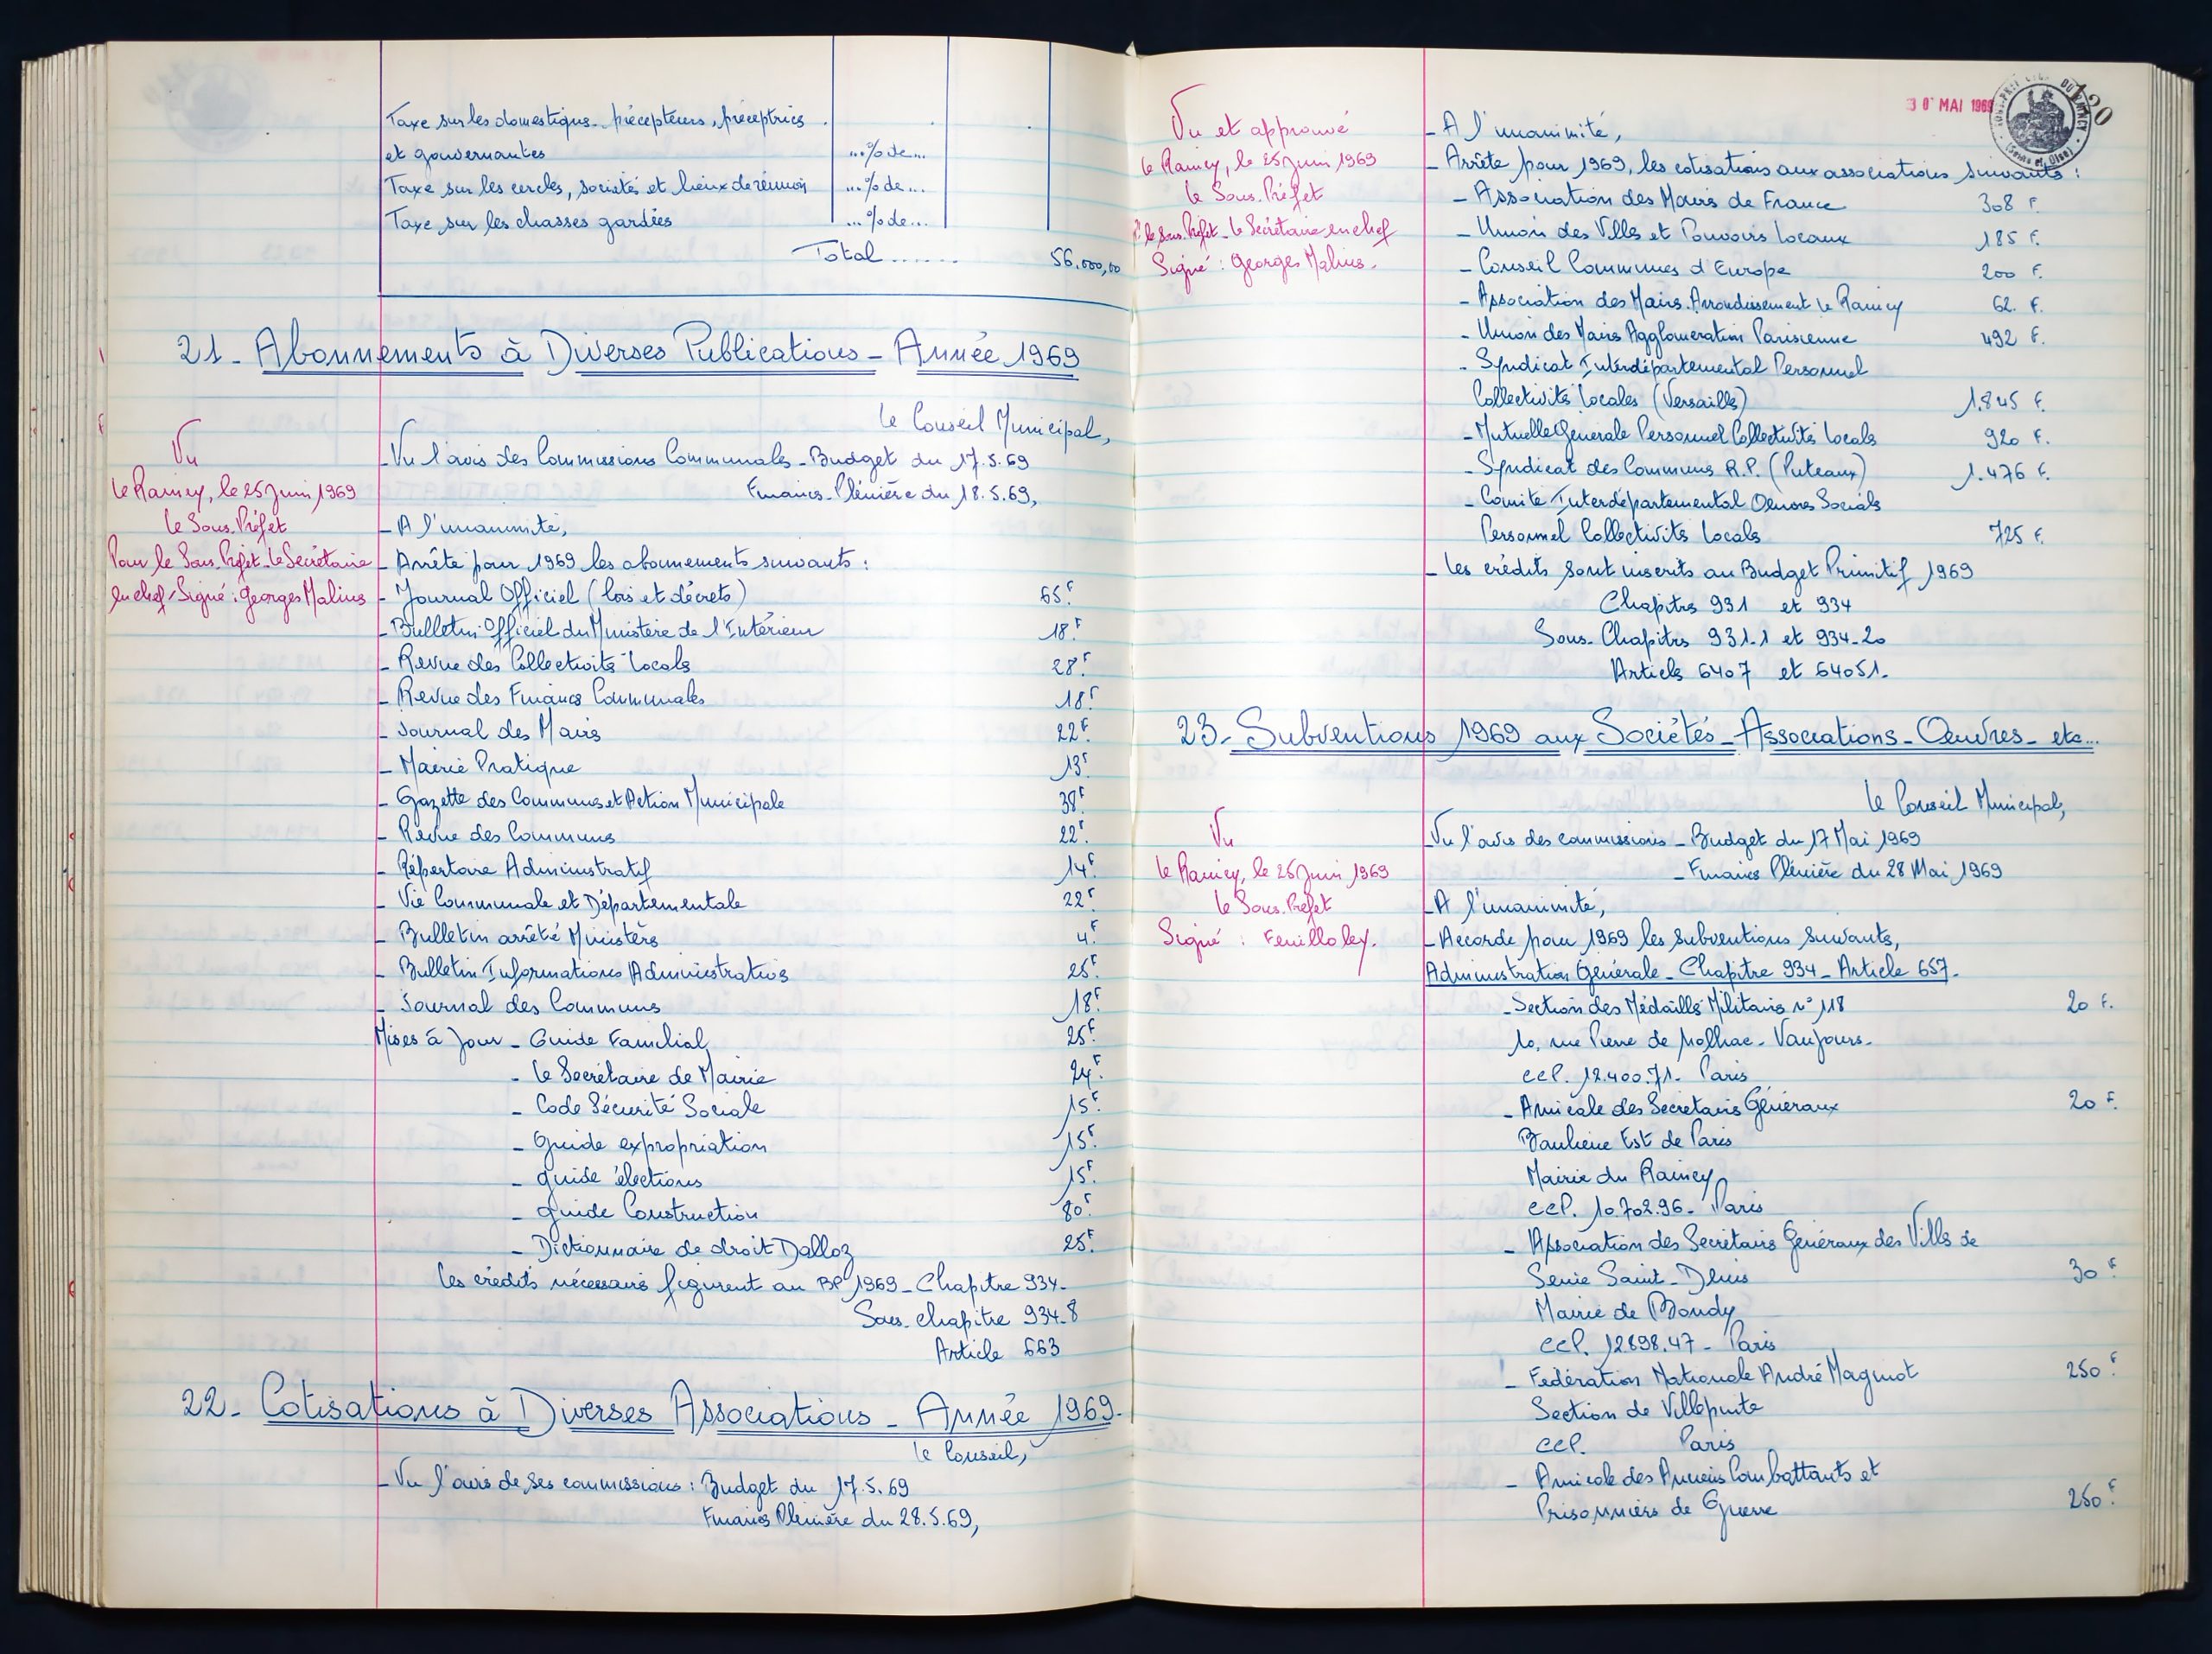 Taxe sur les domestiques - précepteurs, préceptrices
et gouvernantes ...% de...
Taxe sur les cercles, sociétés et lieux de réunion ...% de...
Taxe sur les chasses gardées ...% de...
Total ...... 56.000,00
21 - Abonnements à Diverses Publications - Année 1969
Le Conseil Municipal,
Vu
Le Raincy, le 25 Juin 1969
Le Sous-Préfet
Pour le Sous-Préfet - Le Secrétaire
en chef - Signé : Georges Malius
- Vu l'avis des Commissions Communales - Budget du 17.5.69
Finances - Plénière du 18.5.69,
- A l'unanimité,
- Arrête pour 1969 les abonnements suivants :
- Journal Officiel (lois et décrets) 65F
- Bulletin Officiel du Ministère de l'Intérieur 18F
- Revue des Collectivités Locales 28F
- Revue des Finances Communales 18F
- Journal des Maires 22F
- Mairie Pratique 13F
- Gazette des Communes et Action Municipale 38F
- Revue des Communes 22F
- Répertoire Administratif 14F
- Vie Communale et Départementale 22F
- Bulletin arrêté Ministères 4F
- Bulletin Informations Administratives 25F
- Journal des Communes 18F
Mises à Jour - Guide Familial 25F
- Le Secrétaire de Mairie 24F
- Code Sécurité Sociale 15F
- Guide expropriation 15F
- guide élections 15F
- guide Construction 80F
- Dictionnaire de droit Dalloz 25F
Les crédits nécessaires figurent au BP 1969 - Chapitre 934 -
Sous-chapitre 934-8
Article 663
22 - Cotisations à Diverses Associations - Année 1969 -
Le Conseil,
- Vu l'avis de ses commissions : Budget du 17.5.69
Finances Plénière du 28.5.69,
30 MAI 1969
120
Vu et approuvé
Le Raincy, le 25 Juin 1969
Le Sous-Préfet
Pr le Sous-Préfet - Le Secrétaire en chef
Signé : Georges Malius -
- A l'unanimité,
- Arrête pour 1969, les cotisations aux associations suivants :
- Association des Maires de France 308 F.
- Union des Villes et Pouvoirs Locaux 185 F.
- Conseil Communes d'Europe 200 F.
- Association des Maires - Arrondissement Le Raincy 62. F.
- Union des Maires Agglomération Parisienne 492 F.
- Syndicat Interdépartemental Personnel
Collectivités Locales (Versailles) 1.845 F.
- Mutuelle Générale Personnel Collectivités Locales 920 F.
- Syndicat des Communes R.P. (Puteaux) 1.476 F.
- Comité Interdépartemental Oeuvres Sociales
Personnel Collectivités Locales 725 F.
- Les crédits sont inscrits au Budget Primitif 1969
Chapitres 931 et 934
Sous-Chapitres 931.1 et 934-20
Articles 6407 et 64051 -
23 - Subventions 1969 aux Sociétés - Associations - Œuvres - etc...
Le Conseil Municipal,
Vu
Le Raincy, le 25 Juin 1969
Le Sous-Préfet
Signé : Feuilloley.
Vu l'avis des commissions - Budget du 17 Mai 1969
- Finances Plénière du 28 Mai 1969
- A l'unanimité,
- Accorde pour 1969 les subventions suivants,
Administration Générale - Chapitre 934 - Article 657 -
- Section des Médaillés Militaires n° 118 20 F.
10, rue Pierre de Nolhac - Vaujours -
CCP. 12.400.71 - Paris
- Amicale des Secrétaires Généraux 20 F.
Banlieue Est de Paris
Mairie du Raincy
CCP. 10.702.96 - Paris
- Association des Secrétaires Généraux des Villes de
Seine Saint-Denis 30 F
Mairie de Bondy
CCP. 12.898.47 - Paris
- Fédération Nationale André Maginot 250 F
Section de Villepinte
CCP. Paris
- Amicale des Anciens Combattants et
Prisonniers de Guerre 250 F